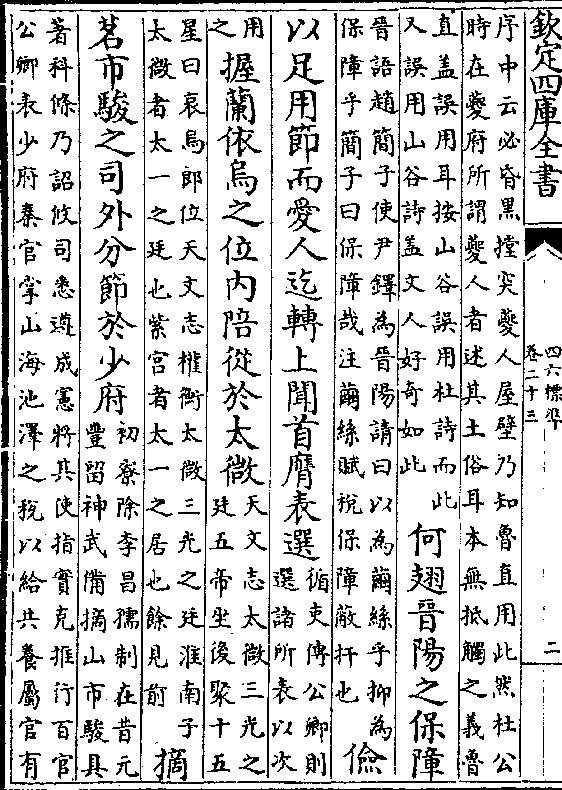 欽定四庫全書
四六標準
卷二十三
二
序中云必昏黑摚突夔人屋壁乃知魯直用此然杜公
時在夔府所謂夔人者述其土俗耳本無抵觸之義魯
直盖誤用耳按山谷誤用杜詩而此
又誤用山谷詩盖文人好奇如此
何翅晉陽之保障
晉語趙簡子使尹鐸為晉陽請曰以為繭絲乎抑為
保障乎簡子曰保障哉注繭絲賦稅保障蔽扞也
儉
以足用節而愛人迄轉上聞首膺表選
循吏傳公卿則
選諸所表以次
用
之
握蘭依烏之位内陪從於太微
天文志太微三光之
廷五帝坐後聚十五
星曰哀烏郎位天文志權衡太微三光之廷淮南子
太微者太一之廷也紫宮者太一之居也餘見前
摘
茗市駿之司外分節於少府
初寮除李昌孺制在昔元
豐留神武備摘山市駿具
著科條乃詔攸司悉遵成憲將其使指實克推行百官
公卿表少府秦官掌山海池澤之稅以給共養屬官有